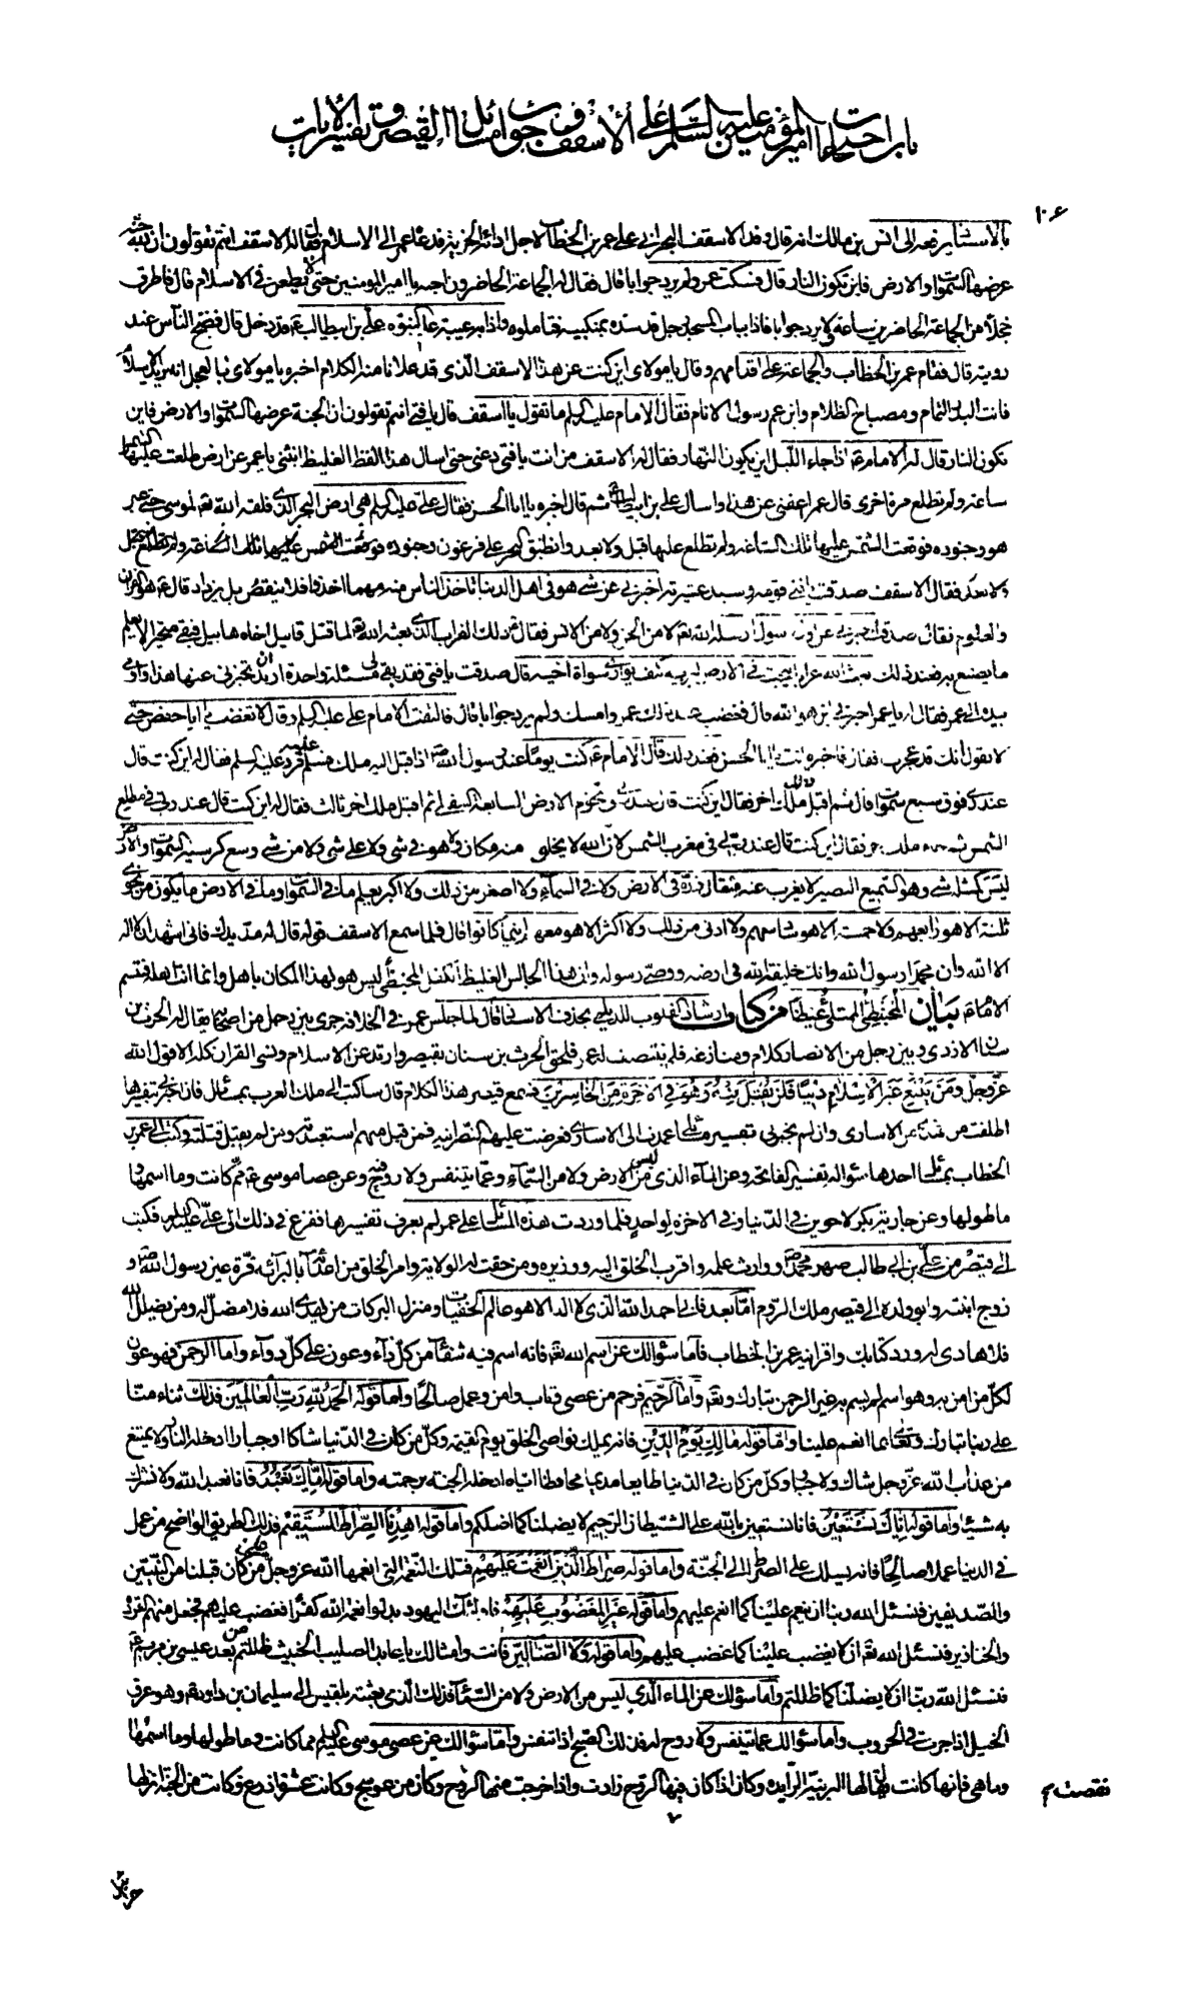 باب احتجاجات امير المؤمنين عليه السلام على الأسقف وجواب مسائل القيصر وتفسير الآيات
١٠٦
بالاسناد يرفعه الى انس بن مالك انه قال وفد الاسقف النجراني على عمر بن الخطاب لاجل ادائه الجزية فدعاه عمر الى الاسلام فقال له الاسقف انتم تقولون ان لله جنة
عرضها السموات والارض فاين تكون النار قال فسكت عمر ولم يرد جوابا قال فقال له الجماعة الحاضرون اجبه يا امير المومنين حتى لا يطعن في الاسلام قال فاطرق
خجلا من الجماعة الحاضرين ساعة لا يرد جوابا فاذا بباب المسجد رجل قد سده بمنكبيه فتاملوه واذا به عيبة علم النبوة علي بن ابيطالب ع قد دخل قال فضج الناس عند
رويته قال فقام عمر بن الخطاب والجماعة على اقدامهم وقال يا مولاى اين كنت عن هذا الاسقف الذى قد علانا منه الكلام اخبره يا مولاى بالعجل انه يريد الاسلام
فانت البدر التمام ومصباح الظلام وابن عم رسول الانام فقال الامام عليه السلم ما تقول يا اسقف قال يا فتى انتم تقولون ان الجنة عرضها السموات والارض فاين
تكون النار قال له الامام ع اذا جاء الليل اين يكون النهار فقال له الاسقف من انت يا فتى دعنى حتى اسال هذا الفظ الغليظ انبئنى يا عمر عن ارض طلعت عليها الشمس
ساعة ولم تطلع مرة اخرى قال عمر اعفنى عن هذا واسال علي بن ابيطالب ثم قال اخبره يا ابا الحسن فقال علي عليه السلم هى ارض البحر الذى فلقه الله تع لموسى حتى عبر
هو وجنوده فوقعت الشمس عليها تلك الساعة ولم تطلع عليها قبل ولا بعد وانطبق البحر على فرعون وجنوده
ولا بعد فقال الاسقف صدقت يا فتى قومه وسيد عشيرته اخبرنى عن شى هو فى اهل الدنيا تاخذ الناس منه مهما اخذوا فلا ينقص بل يزداد قال ع هو القران
والعلوم فقال صدقت اخبرنى عن اول رسول ارسله الله تع لا من الجن ولا من الانس فقال ع ذلك الغراب الذى بعثه الله تع لما قتل قابيل اخاه هابيل فبقى متحيرا لا يعلم
ما يصنع به فعند ذلك بعث الله غرابا يبحث فى الارض ليريه كيف يوارى سواة اخيه قال صدقت يا فتى فقد بقى لى مسئلة واحدة اريد ان تخبرنى عنها هذا واومى
بيده الى عمر فقال له يا عمر اخبرنى اين هو الله قال فغضب عند ذلك عمر وامسك ولم يرد جوابا قال فالتفت الامام علي عليه السلم وقال لا تغضب يا ابا حفص حتى
لا يقول انك قد عجزت فقال فاخبره انت يا ابا الحسن فعند ذلك قال الامام ع كنت يوما عند رسول الله ص اذ اقبل اليه ملك فسلم عليه فرد عليه السلم فقال له اين كنت قال
عند ربى فوق سبع سموات قال ثم اقبل ملك اخر فقال اين كنت قال عند ربى فى تخوم الارض السابعة السفلى ثم اقبل ملك اخر ثالث فقال له اين كنت قال عند ربى فى مطلع
الشمس ثم جاء ملك اخر فقال اين كنت قال عند ربى فى مغرب الشمس لان الله لا يخلو منه مكان ولا هو فى شى ولا على شى ولا من شى وسع كرسيه السموات والارض
ليس كمثله شى وهو السميع البصير لا يعزب عنه مثقال ذرة فى الارض ولا فى السماء ولا اصغر من ذلك ولا اكبر يعلم ما فى السموات وما فى الارض ما يكون من نجوى
ثلثة الا هو رابعهم ولا خمسة الا هو سادسهم ولا ادنى من ذلك ولا اكثر الا هو معهم اينما كانوا قال فلما سمع الاسقف قوله قال له مد يدك فانى اشهد ان لا اله
الا الله وان محمدا رسول الله وانك خليفة الله فى ارضه ووصى رسوله وان هذا الجالس الغليظ الكفل المحبنطئ ليس هو لهذا المكان باهل وانما انت اهله فتبسم
الامام ع بيان المحبنطئ الممتلى غيظا من كتاب ارشاد القلوب للديلمى بحذف الاسناد قال لما جلس عمر فى الخلافة جرى بين رجل من اصحابه يقال له الحرث بن
سنان الازدى وبين رجل من الانصار كلام ومنازعة فلم ينتصف له عمر فلحق الحرث بن سنان بقيصر وارتد عن الاسلام ونسى القران كله الا قول الله
عز وجل وَمَن يَبْتَغِ غَيْرَ الْإِسْلَامِ دِينًا فَلَن يُقْبَلَ مِنْهُ وَهُوَ فِى الْآخِرَةِ مِنَ الْخَاسِرِينَ فسمع قيصر هذا الكلام قال ساكتب الى ملك العرب بمسائل فان اخبرنى بتفسيرها
اطلقت من عندى من الاسارى وان لم يخبرنى بتفسير مسائلى عمدت الى الاسارى فعرضت عليهم النصرانية فمن قبل منهم استعبدته ومن لم يقبل قتلته وكتب الى عمر بن
الخطاب بمسائل احدها سؤاله تفسير الفاتحة وعن الماء الذى ليس من الارض ولا من السماء وعما يتنفس ولا روح فيه وعن عصا موسى ع مم كانت وما اسمها
ما طولها وعن جارية بكر لاخوين فى الدنيا وفى الاخرة لواحد فلما وردت هذه المسائل على عمر لم يعرف تفسيرها ففزع فى ذلك الى علي عليه السلم فكتب
الى قيصر من علي بن ابى طالب صهر محمد ص ووارث علمه واقرب الخلق اليه ووزيره ومن حقت له الولاية وامر الخلق من اعدائه بالبرائة قرة عين رسول الله ص و
زوج ابنته وابو ولده الى قيصر ملك الروم اما بعد فانى احمد الله الذى لا اله الا هو عالم الخفيات ومنزل البركات من يهدى الله فلا مضل له ومن يضلل الله
فلا هادى له ورد كتابك واقرانيه عمر بن الخطاب فاما سؤالك عن اسم الله تع فانه اسم فيه شفاء من كل داء وعون على كل دواء واما الرحمن فهو عون
لكل من امن به وهو اسم لم يسم به غير الرحمن تبارك وتع واما الرحيم فرحم من عصى وتاب وامن وعمل صالحا واما قوله الحمد لله رب العالمين فذلك ثناء منا
على ربنا تبارك وتعالى بما انعم علينا واما قوله مالك يوم الدين فانه يملك نواصى الخلق يوم القيمة وكل من كان فى الدنيا شاكا او جبارا ادخله النار ولا يمتنع
من عذاب الله عز وجل شاك ولا جبار وكل من كان فى الدنيا طايعا مديما محافظا اياه ادخله الجنة برحمته واما قوله اياك نعبد فانا نعبد الله ولا نشرك
به شيئا واما قوله اياك نستعين فانا نستعين بالله على الشيطان الرجيم لا يضلنا كما اضلكم واما قوله اهدنا الصراط المستقيم فذلك الطريق الواضح من عمل
فى الدنيا عملا صالحا فانه يسلك على الصراط الى الجنة واما قوله صراط الذين انعمت عليهم فتلك النعمة التى انعمها الله عز وجل على من كان قبلنا من النبيين
والصديقين فنسئل الله ربنا ان ينعم علينا كما انعم عليهم واما قوله غير المغضوب عليهم فاولئك اليهود بدلوا نعمة الله كفرا فغضب عليهم فجعل منهم القردة
والخنازير فنسئل الله تع ان لا يغضب علينا كما غضب عليهم واما قوله ولا الضالين فانت وامثالك يا عابد الصليب الخبيث ضللتم من بعد عيسى بن مريم ع
فنسئل الله ربنا ان لا يضلنا كما ضللتم واما سؤالك عن الماء الذى ليس من الارض ولا من السماء فذلك الذى بعثته بلقيس الى سليمان بن داود ع وهو عرق
الخيل اذا جرت فى الحروب واما سؤالك عما يتنفس ولا روح له فذلك الصبح اذا تنفس واما سؤالك عن عصى موسى عليه السلم مما كانت وما طولها وما اسمها
وما هى فانها كانت يقال لها البرنية الزايدة وكان اذا كان فيها الروح زادت واذا خرجت منها الروح نقصت م وكان من عوسج وكانت عشرة اذرع وكانت من الجنة انزلها
جبرئيل